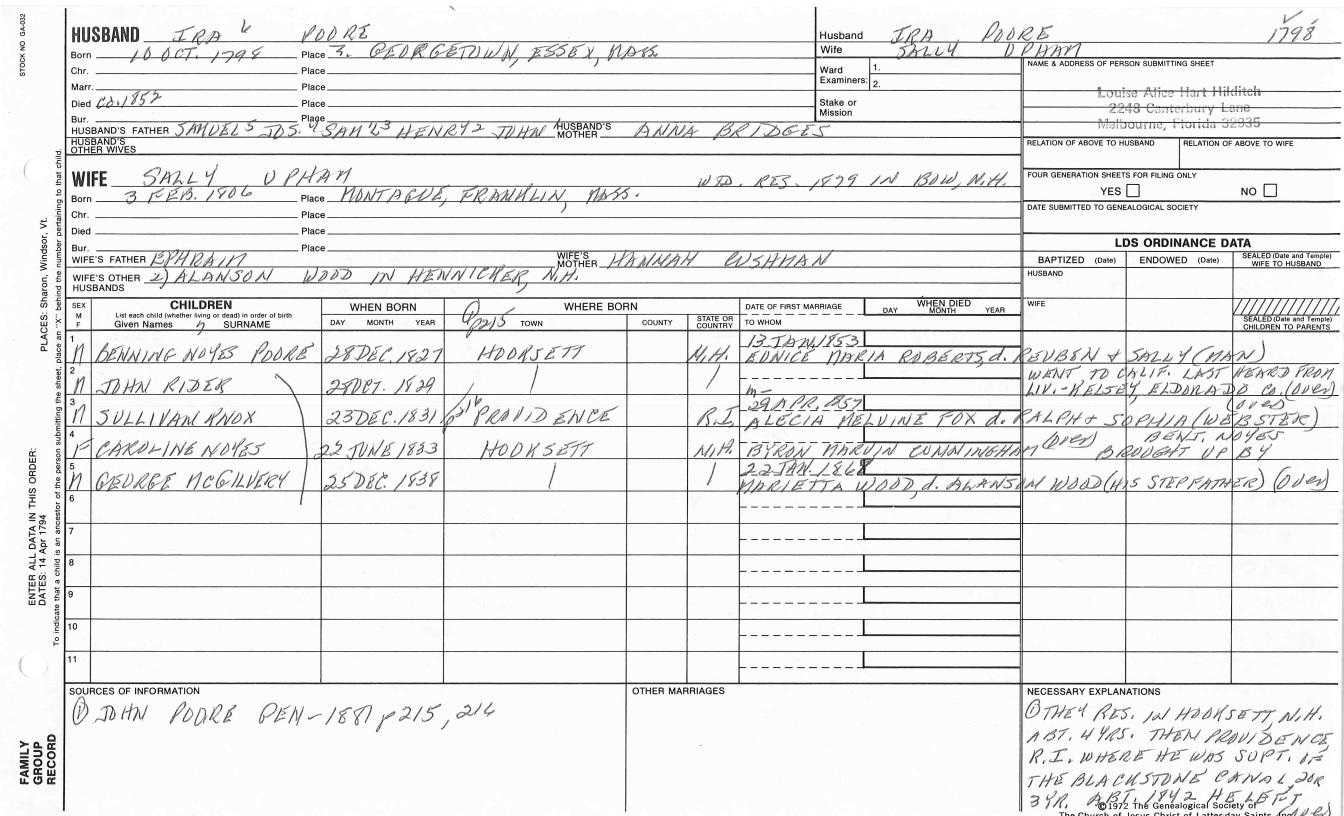 STOCK NO. GA-032
HUSBAND IRA 6 POORE
Born 10 OCT. 1798 Place 3. GEORGETOWN, ESSEX, MASS
Chr. Place
Marr. Place
Died Ca. 1852 Place
Bur. Place
HUSBAND'S FATHER SAMUEL5 JOS.4 SAM'L3 HENRY2 JOHN1 HUSBAND'S MOTHER ANNA BRIDGES
HUSBAND'S OTHER WIVES
WIFE SALLY UPHAM WID. RES. 1879 IN BOW, N.H.
Born 3 FEB. 1806 Place MONTAGUE, FRANKLIN, MASS.
Chr. Place
Died Place
Bur. Place
WIFE'S FATHER EPHRAIM WIFE'S MOTHER HANNAH CUSHMAN
WIFE'S OTHER HUSBANDS 2) ALANSON WOOD IN HENNICKER, N.H.
Husband IRA POORE 1798
Wife SALLY UPHAM
Ward Examiners: 1.
2.
Stake or Mission
NAME & ADDRESS OF PERSON SUBMITTING SHEET
Louise Alice Hart Hilditch
2248 Canterbury Lane
Melbourne, Florida 32935
RELATION OF ABOVE TO HUSBAND RELATION OF ABOVE TO WIFE
FOUR GENERATION SHEETS FOR FILING ONLY
YES NO
DATE SUBMITTED TO GENEALOGICAL SOCIETY
LDS ORDINANCE DATA
BAPTIZED (Date) ENDOWED (Date) SEALED (Date and Temple) WIFE TO HUSBAND
HUSBAND
WIFE
SEALED (Date and Temple) CHILDREN TO PARENTS
SEX M F
CHILDREN
List each child (whether living or dead) in order of birth
Given Names 7 SURNAME
WHEN BORN
DAY MONTH YEAR
WHERE BORN
① p215 TOWN COUNTY STATE OR COUNTRY
DATE OF FIRST MARRIAGE
TO WHOM
WHEN DIED
DAY MONTH YEAR
1 13 JAN 1853
M BENNING NOYES POORE 28 DEC. 1827 HOOKSETT N.H. EUNICE MARIA ROBERTS, d. REUBEN & SALLY (MAN)
2 WENT TO CALIF. LAST HEARD FROM
M JOHN RIDER 2 OCT. 1829 LIV. - KELSEY, ELDORADO CO. (over)
3 m- 29 APR. 1857 (over)
M SULLIVAN KNOX 23 DEC. 1831 p216 PROVIDENCE R.I. ALECIA MELVINE FOX d. RALPH + SOPHIA (WEBSTER)
4 (over) BENJ. NOYES
F CAROLINE NOYES 22 JUNE 1833 HOOKSETT N.H. BYRON MARVIN CUNNINGHAM BROUGHT UP BY
5 22 JAN. 1868
M GEORGE McGILVERY 25 DEC. 1838 MARIETTA WOOD, d. ALANSON WOOD (HIS STEPFATHER) (over)
6
7
8
9
10
11
SOURCES OF INFORMATION
① JOHN POORE GEN - 1881 p215, 216
OTHER MARRIAGES
NECESSARY EXPLANATIONS
① THEY RES. IN HOOKSETT, N.H.
ABT. 4 YRS. THEN PROVIDENCE,
R.I. WHERE HE WAS SUPT. OF
THE BLACKSTONE CANAL, 2 OR
3 YR. ABT. 1842 HE LEFT
(over)
©1972 The Genealogical Society of
The Church of Jesus Christ of Latter-day Saints, Inc.
ENTER ALL DATA IN THIS ORDER:
DATES: 14 Apr 1794 PLACES: Sharon, Windsor, Vt.
To indicate that a child is an ancestor of the person submitting the sheet, place an "X" behind the number pertaining to that child.
FAMILY GROUP RECORD